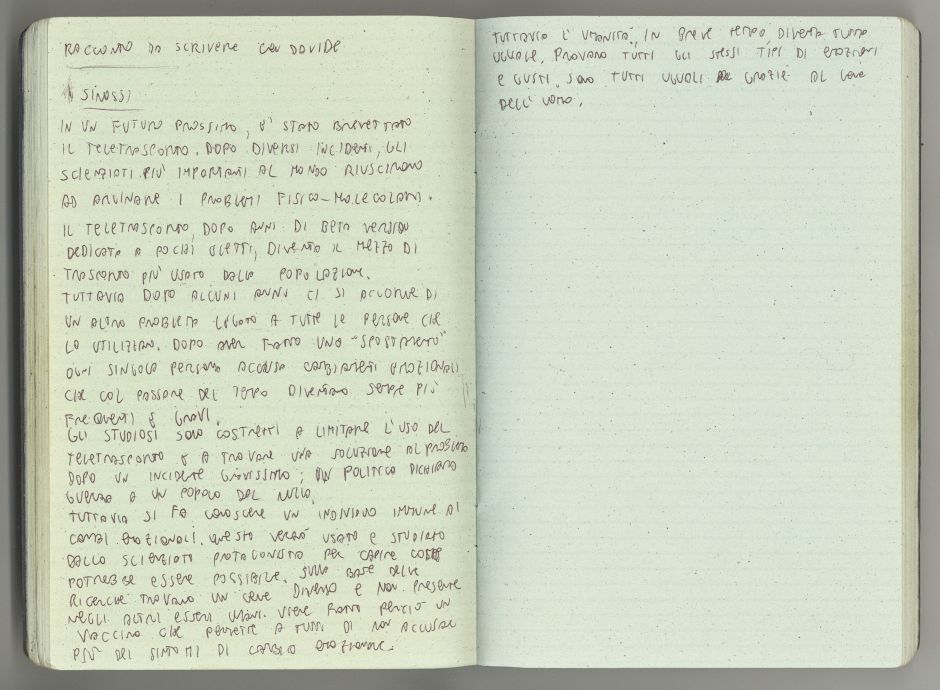 RACCONTO DA SCRIVERE CON DAVIDE
SINOSSI
IN UN FUTURO PROSSIMO, E' STATO BREVETTATO
IL TELETRASPORTO. DOPO DIVERSI INCIDENTI, GLI
SCIENZIATI PIÙ IMPORTANTI AL MONDO RIUSCIRONO
AD ARGINARE I PROBLEMI FISICO-MOLECOLARI.
IL TELETRASPORTO, DOPO ANNI DI BETA VERSION
DEDICATA A POCHI ELETTI, DIVENTA IL MEZZO DI
TRASPORTO PIU' USATO DALLA POPOLAZIONE.
TUTTAVIA DOPO ALCUNI ANNI CI SI ACCORGE DI
UN ALTRO PROBLEMA LEGATO A TUTTE LE PERSONE CHE
LO UTILIZZAN. DOPO AVER FATTO UNO "SPOSTAMENTO"
OGNI SINGOLA PERSONA ACCUSA CAMBIAMENTI EMOZIONALI
CHE COL PASSARE DEL TEMPO DIVENTANO SEMPRE PIÙ
FREQUENTI E GRAVI.
GLI STUDIOSI SONO COSTRETTI A LIMITARE L'USO DEL
TELETRASPORTO E A TROVARE UNA SOLUZIONE AL PROBLEMA
DOPO UN INCIDENTE GRAVISSIMO; UN POLITICO DICHIARA
GUERRA A UN POPOLO DAL NULLA.
TUTTAVIA SI FA CONOSCERE UN INDIVIDUO IMMUNE AI
CAMBI EMOZIONALI. QUESTO VERRÀ USATO E STUDIATO
DALLO SCIENZIATO PROTAGONISTA PER CAPIRE COME
POTREBBE ESSERE POSSIBILE. SULLA BASE DELLE
RICERCHE TROVANO UN GENE DIVERSO E NON PRESENTE
NEGLI ALTRI ESSERI UMANI. VIENE FATTO PERCIÒ UN
VACCINO CHE PERMETTE A TUTTI DI NON ACCUSARE
PIÙ DEI SINTOMI DI CAMBIO EMOZIONALE.
TUTTAVIA L'UMANITÀ, IN BREVE TEMPO, DIVENTA TUTTA
UGUALE, PROVANO TUTTI GLI STESSI TIPI DI EMOZIONI
E GUSTI, SONO TUTTI UGUALI GRAZIE AL GENE
DELL'UOMO.